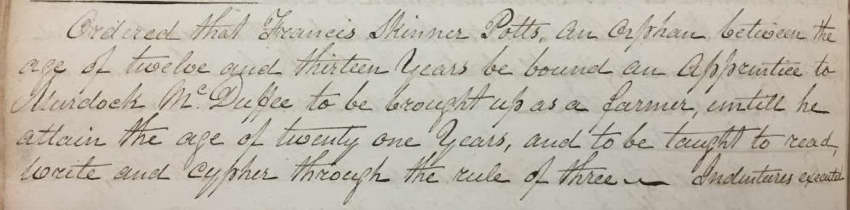 Ordered that Francis Skinner Potts, an orphan between the
age of twelve and thirteen Years be bound an Apprintice to
Murdock Mc. Duffee to be brought up as a farmer, untill he
attain the age of twenty one Years, and to be taught to read,
write and Cypher through the rule of three — Indentures executed